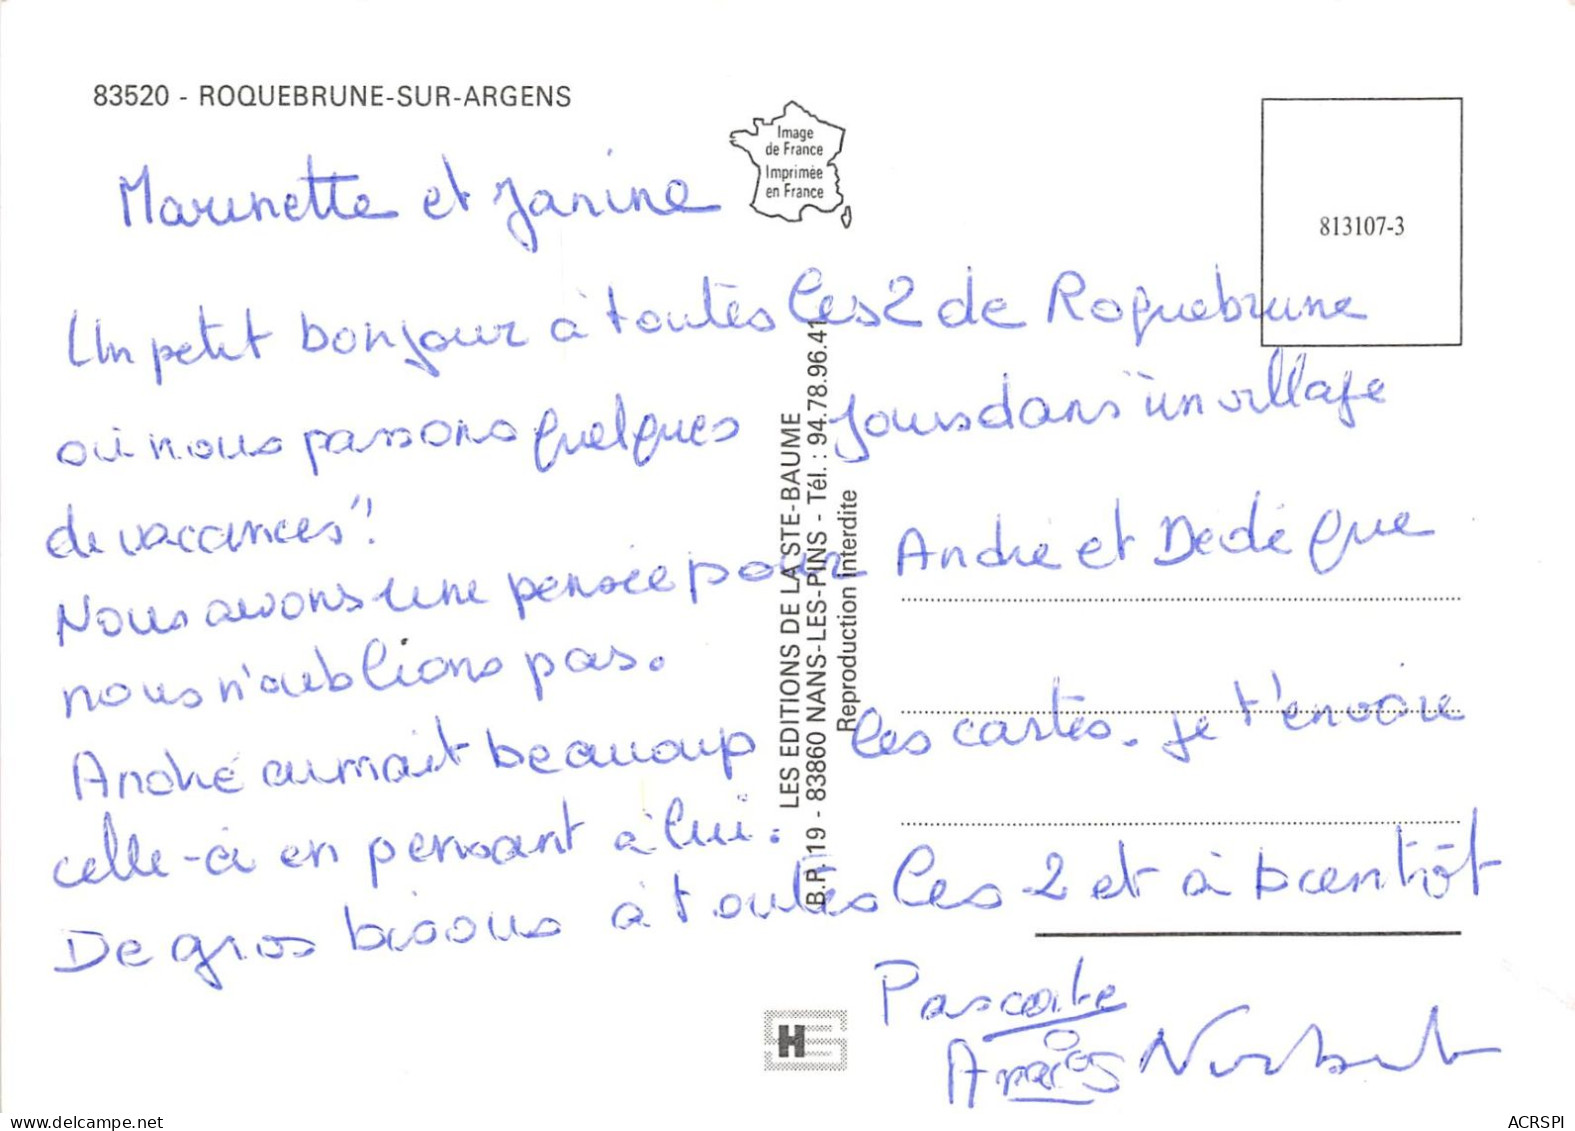 83520 - ROQUEBRUNE-SUR-ARGENS
Image
de France
Imprimée
en France
813107-3
Marinette et Janine
Un petit bonjour à toutes les 2 de Roquebrune
où nous passons quelques jours dans "un village
de vacances"!
Nous avons une pensée pour André et Dédé que
nous n'oublions pas.
André aimait beaucoup les cartes. je t'envoie
celle-ci en pensant à lui.
De gros bisous à toutes les 2 et à bientôt
Pascale
Norbert
LES EDITIONS DE LA STE-BAUME
B.P. 19 - 83860 NANS-LES-PINS - Tél. : 94.78.96.41
Reproduction Interdite
HS
delcampe.net
ACRSPI